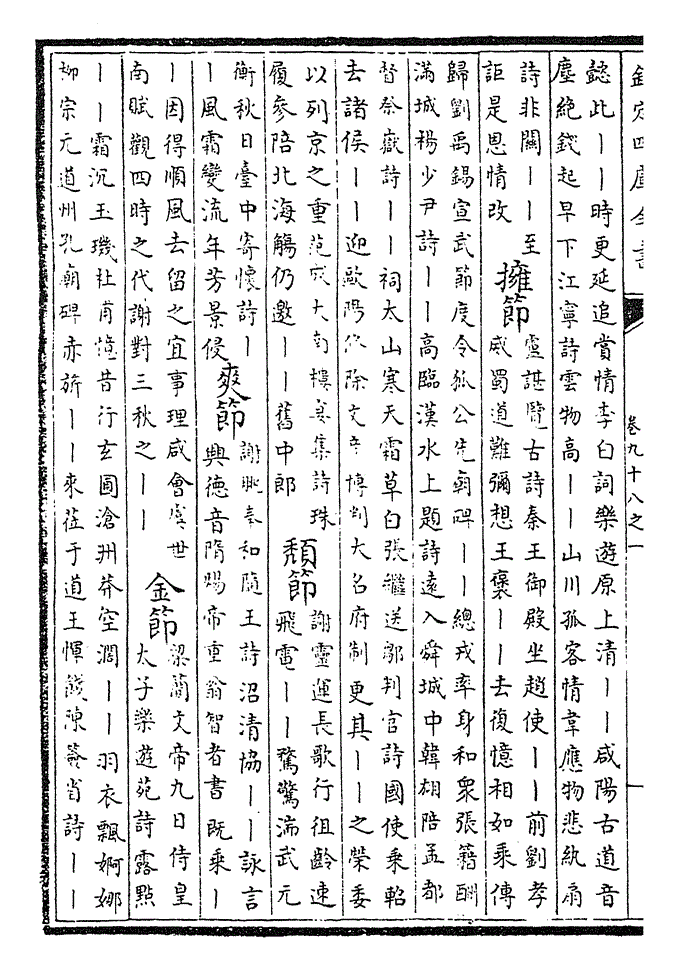 欽定四庫全書
卷九十八之一
一
懿此||時更延追賞情李白詞樂遊原上清||咸陽古道音
塵絶錢起早下江寧詩雲物高||山川孤客情韋應物悲紈扇
詩非關||至
詎是恩情改
擁節
盧諶覽古詩秦王御殿坐趙使||前劉孝
威蜀道難彌想王褒||去復憶相如乘傳
歸劉禹錫宣武節度令狐公先廟碑||總戎率身和衆張籍酬
滿城楊少尹詩||高臨漢水上題詩遠入舜城中韓翃陪孟都
督祭嶽詩||祠太山寒天霜草白張繼送鄒判官詩國使乘軺
去諸侯||迎歐陽修除文彥博判大名府制更其||之榮委
以列京之重范成大南樓宴集詩珠
履參陪北海觴仍邀||舊中郎
頽節
謝靈運長歌行徂齡速
飛電||驚驚湍武元
衡秋日臺中寄懷詩|
|風霜變流年芳景侵
爽節
謝朓奉和隨王詩沼清協||詠言
興德音隋煬帝重翁智者書既乘|
|因得順風去留之宜事理咸會虞世
南賦觀四時之代謝對三秋之||
金節
梁簡文帝九日侍皇
太子樂遊苑詩露點
||霜沉玉璣杜甫憶昔行玄圃滄洲莽空濶||羽衣飄婀娜
柳宗元道州孔廟碑赤旂||來莅于道王惲餞陳簽省詩||